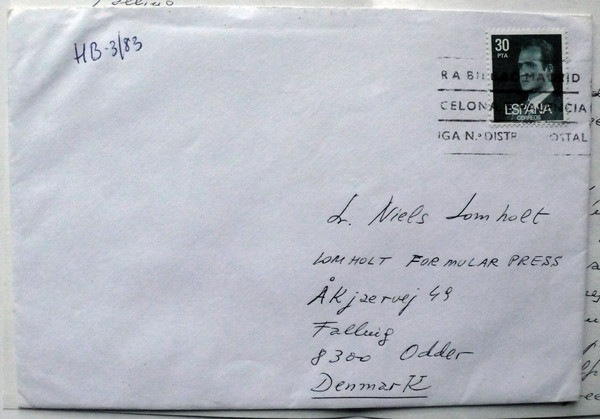 HB-3/83
30
PTA
ESPAÑA
CORREOS
RA BILBAO MADRID
CELONA VALENCIA
IGA N.º DISTR POSTAL
Sr. Niels Lomholt
LOMHOLT FORMULAR PRESS
Åkjzervej 49
Falling
8300 Odder
Denmark